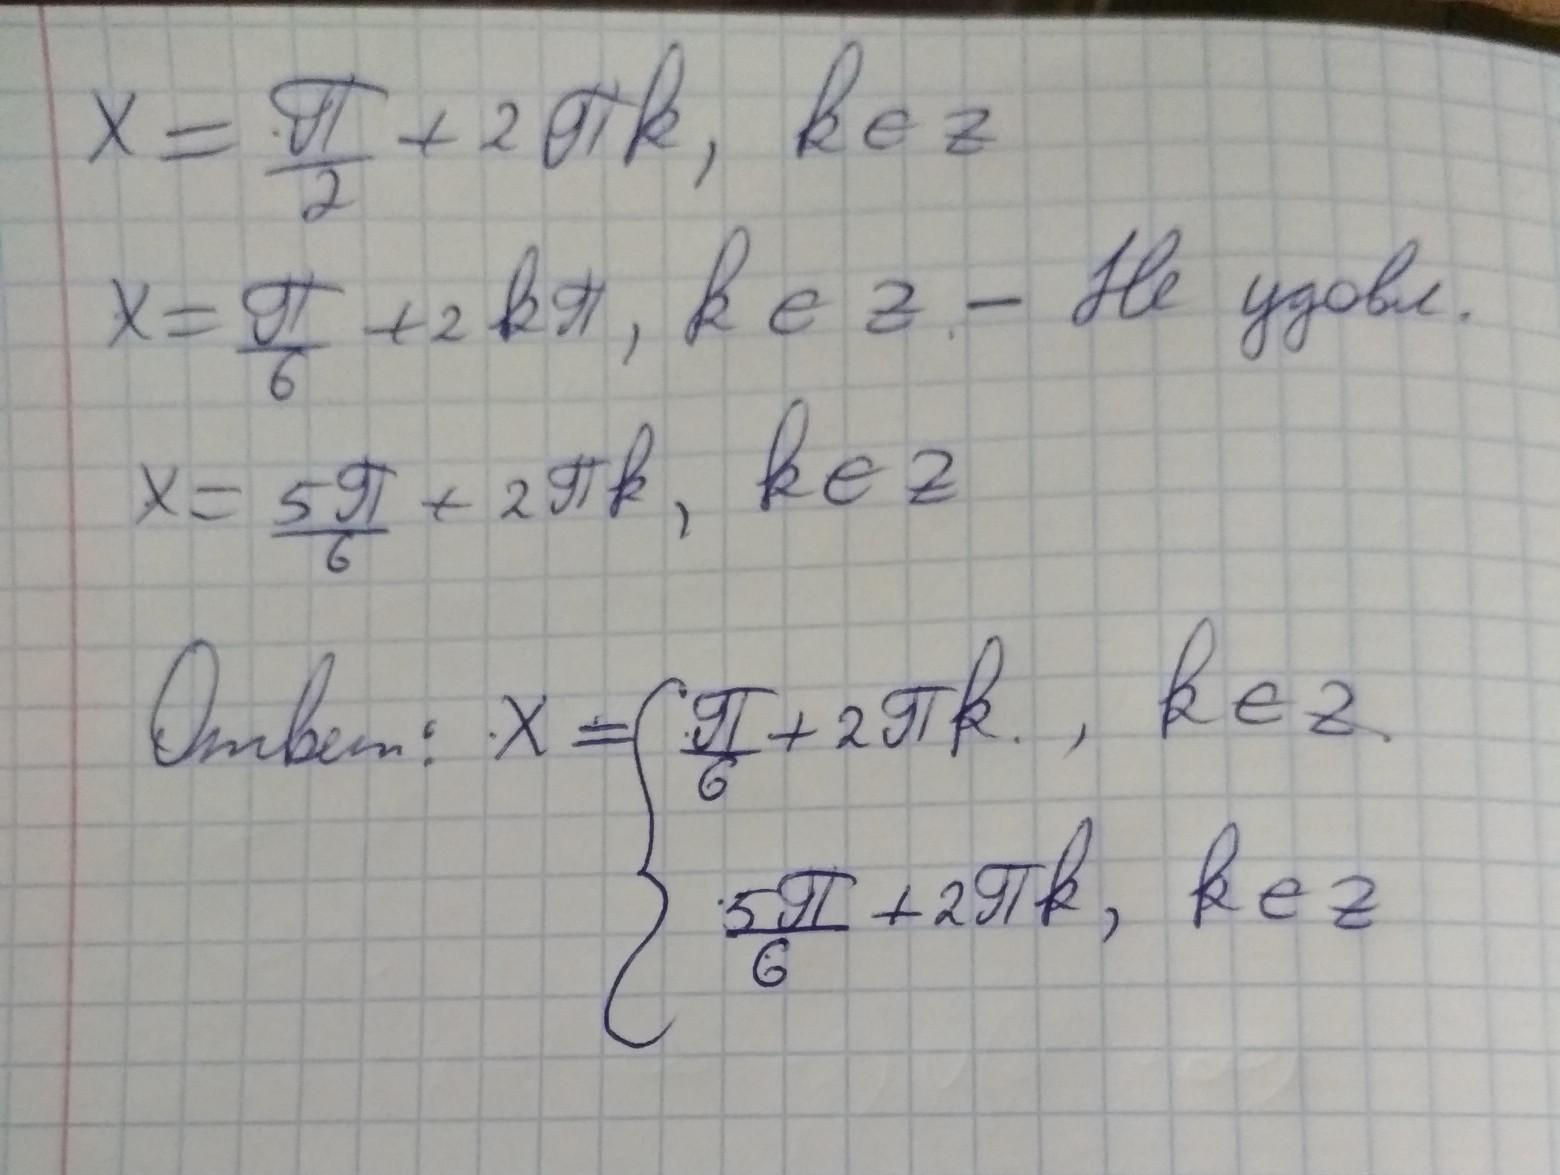 x = π/2 + 2πk, k ∈ z
x = π/6 + 2kπ, k ∈ z. - Не удовл.
x = 5π/6 + 2πk, k ∈ z
Ответ: x = { π/6 + 2πk, k ∈ z
5π/6 + 2πk, k ∈ z